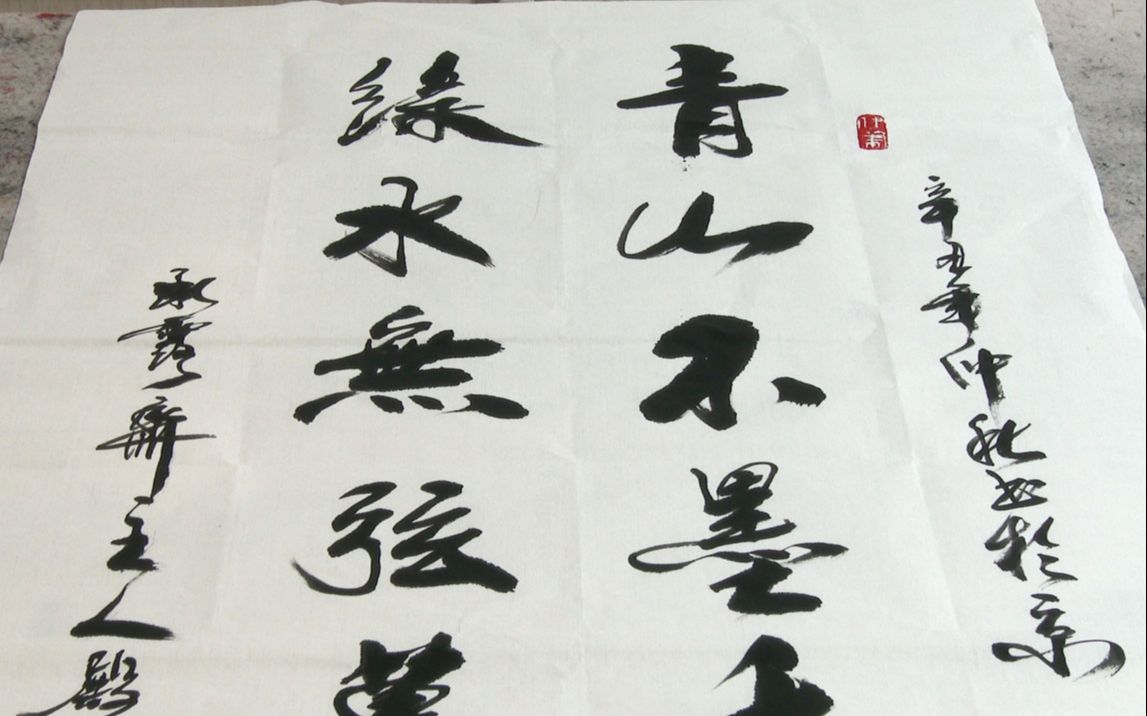 辛丑年仲秋书於京
青山不墨千
綠水無弦萬
承露齋主人殿